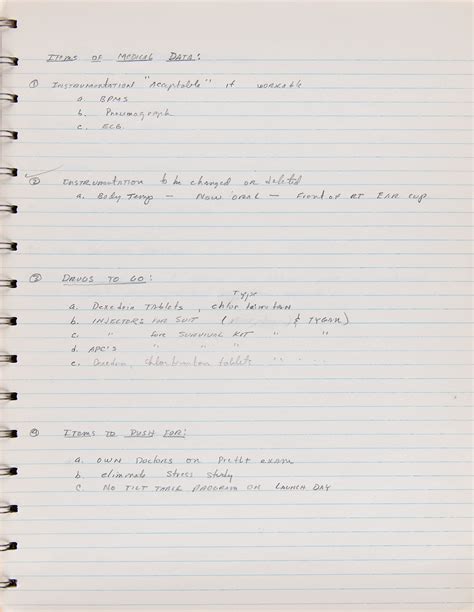 Items of Medical Data:
① Instrumentation "Acceptable" if workable
a. BPMS
b. Pneumograph
c. ECG.
② Instrumentation to be changed or deleted
a. Body Temp – Now oral – Front of RT Ear cup
③ Drugs to go:
Type
a. Dexedrin Tablets, chlor
b. Injectors for suit ( & TYGAN)
c. " for Survival Kit " "
d. APC's " " "
e. tablets
④ Items to push for:
a. own Doctors on Preflt exam
b. eliminate stress study
c No tilt table program on Launch Day